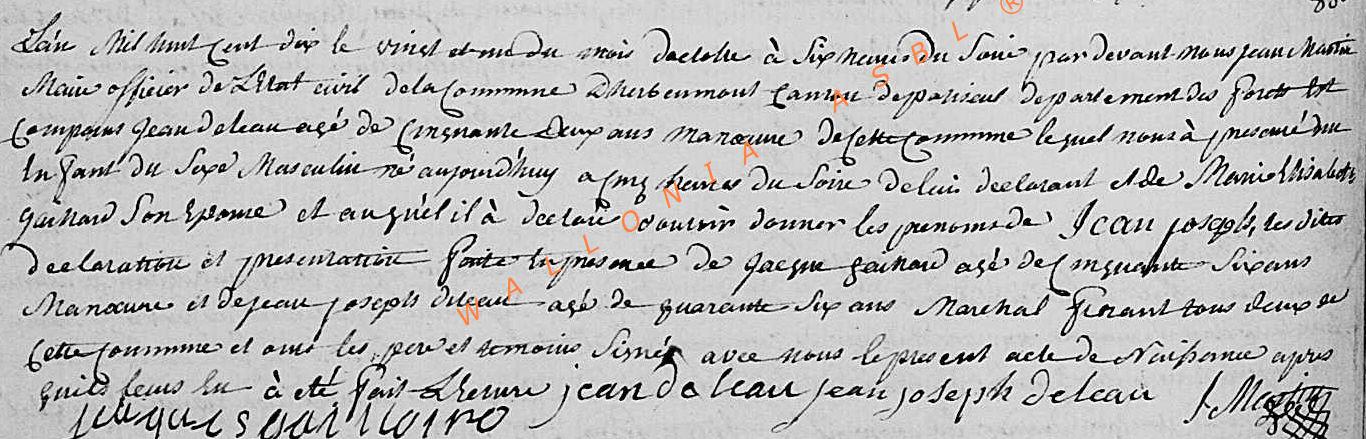 L'an Mil huit Cent dix le vingt et un du mois doctobre à Six heures du Soire par devant nous jean Martin
Maire officier de L'Etat civil de la Commune Dherbeumont Canton de paliseul departement des forets Est
Comparus jean deleau agé de Cinquante deux ans manœuvre de Cette Commune lequel nous à presenté un
Enfant du Sexe Masculin né aujourd'huy a cinq heures du Soire de luis declarant et de Marie Elisabeth
gaillard Son Epouse et auquel il à declaré vouloir donner les prenoms de Jean joseph, les dites
declaration et presentation faite En presence de jacque gaillard agé de Cinquante Six ans
Manœuvre et de jean joseph deleau agé de quarante Six ans Marchal ferant tous deux de
Cette Commune et onts les pere et temoins Signés avec nous le present acte de Naissance apres
quil leurs lu à été fait Lecture jean deleau jean joseph deleau J Martin
jacques gaillard
WALLONIA ASBL ®